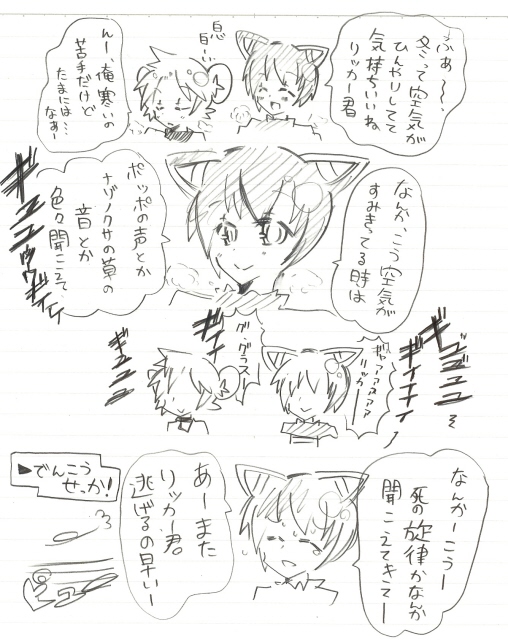 ふぁ～～、
冬って空気が
ひんやりしてて
気持ちいいね
リッカー君
息
白ーい
んー、俺寒いの
苦手だけど
たまには…
なぁー
なんか、こう空気が
すみきってる時は
ポッポの声とか
ナゾノクサの草の
音とか
色々聞こえて
ギュュュウウ
ギィイ
ギュュュュ
ギィイイイ
ギャァァァァァ
リッカー
ギィイイ
グ
グラスー
ギュュュ
なんかーこうー
死の旋律かなんか
聞こえてきてー
あーまた
リッカー君
逃げるの早いー
▶でんこう
せっか!
ピュー